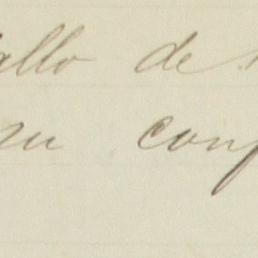 allo de
su conf